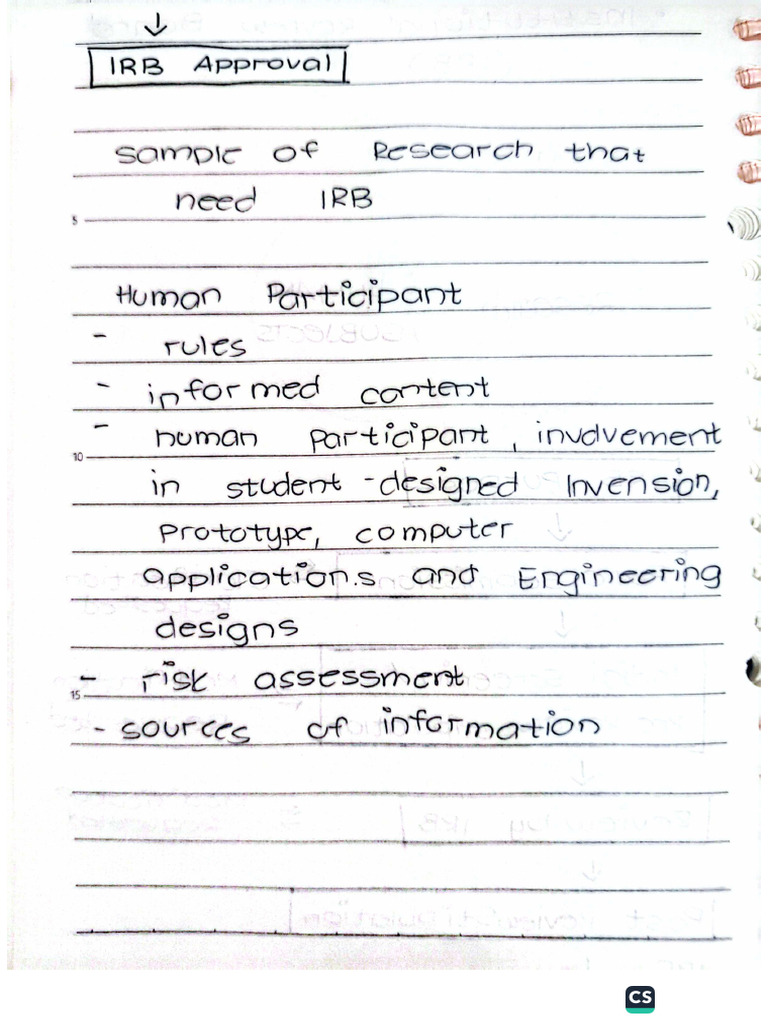 ↓
IRB Approval
Sample of Research that
need IRB
5
Human Participant
- rules
- informed content
- human participant, involvement
10
in student-designed Invension,
Prototype, computer
applications and Engineering
designs
- risk assessment
15
- sources of information
CS